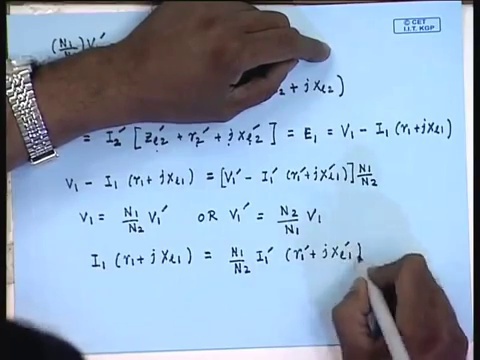 © CET
I.I.T. KGP
(N1/N2) V1′
2 + j x_l2)
= I2′ [ Z_l2′ + r2′ + j x_l2′ ] = E1 = V1 − I1 (r1 + j x_l1)
V1 − I1 (r1 + j x_l1) = [V1′ − I1′ (r1′ + j x_l1′)] N1/N2
V1 = N1/N2 V1′ OR V1′ = N2/N1 V1
I1 (r1 + j x_l1) = N1/N2 I1′ (r1′ + j x_l1′)